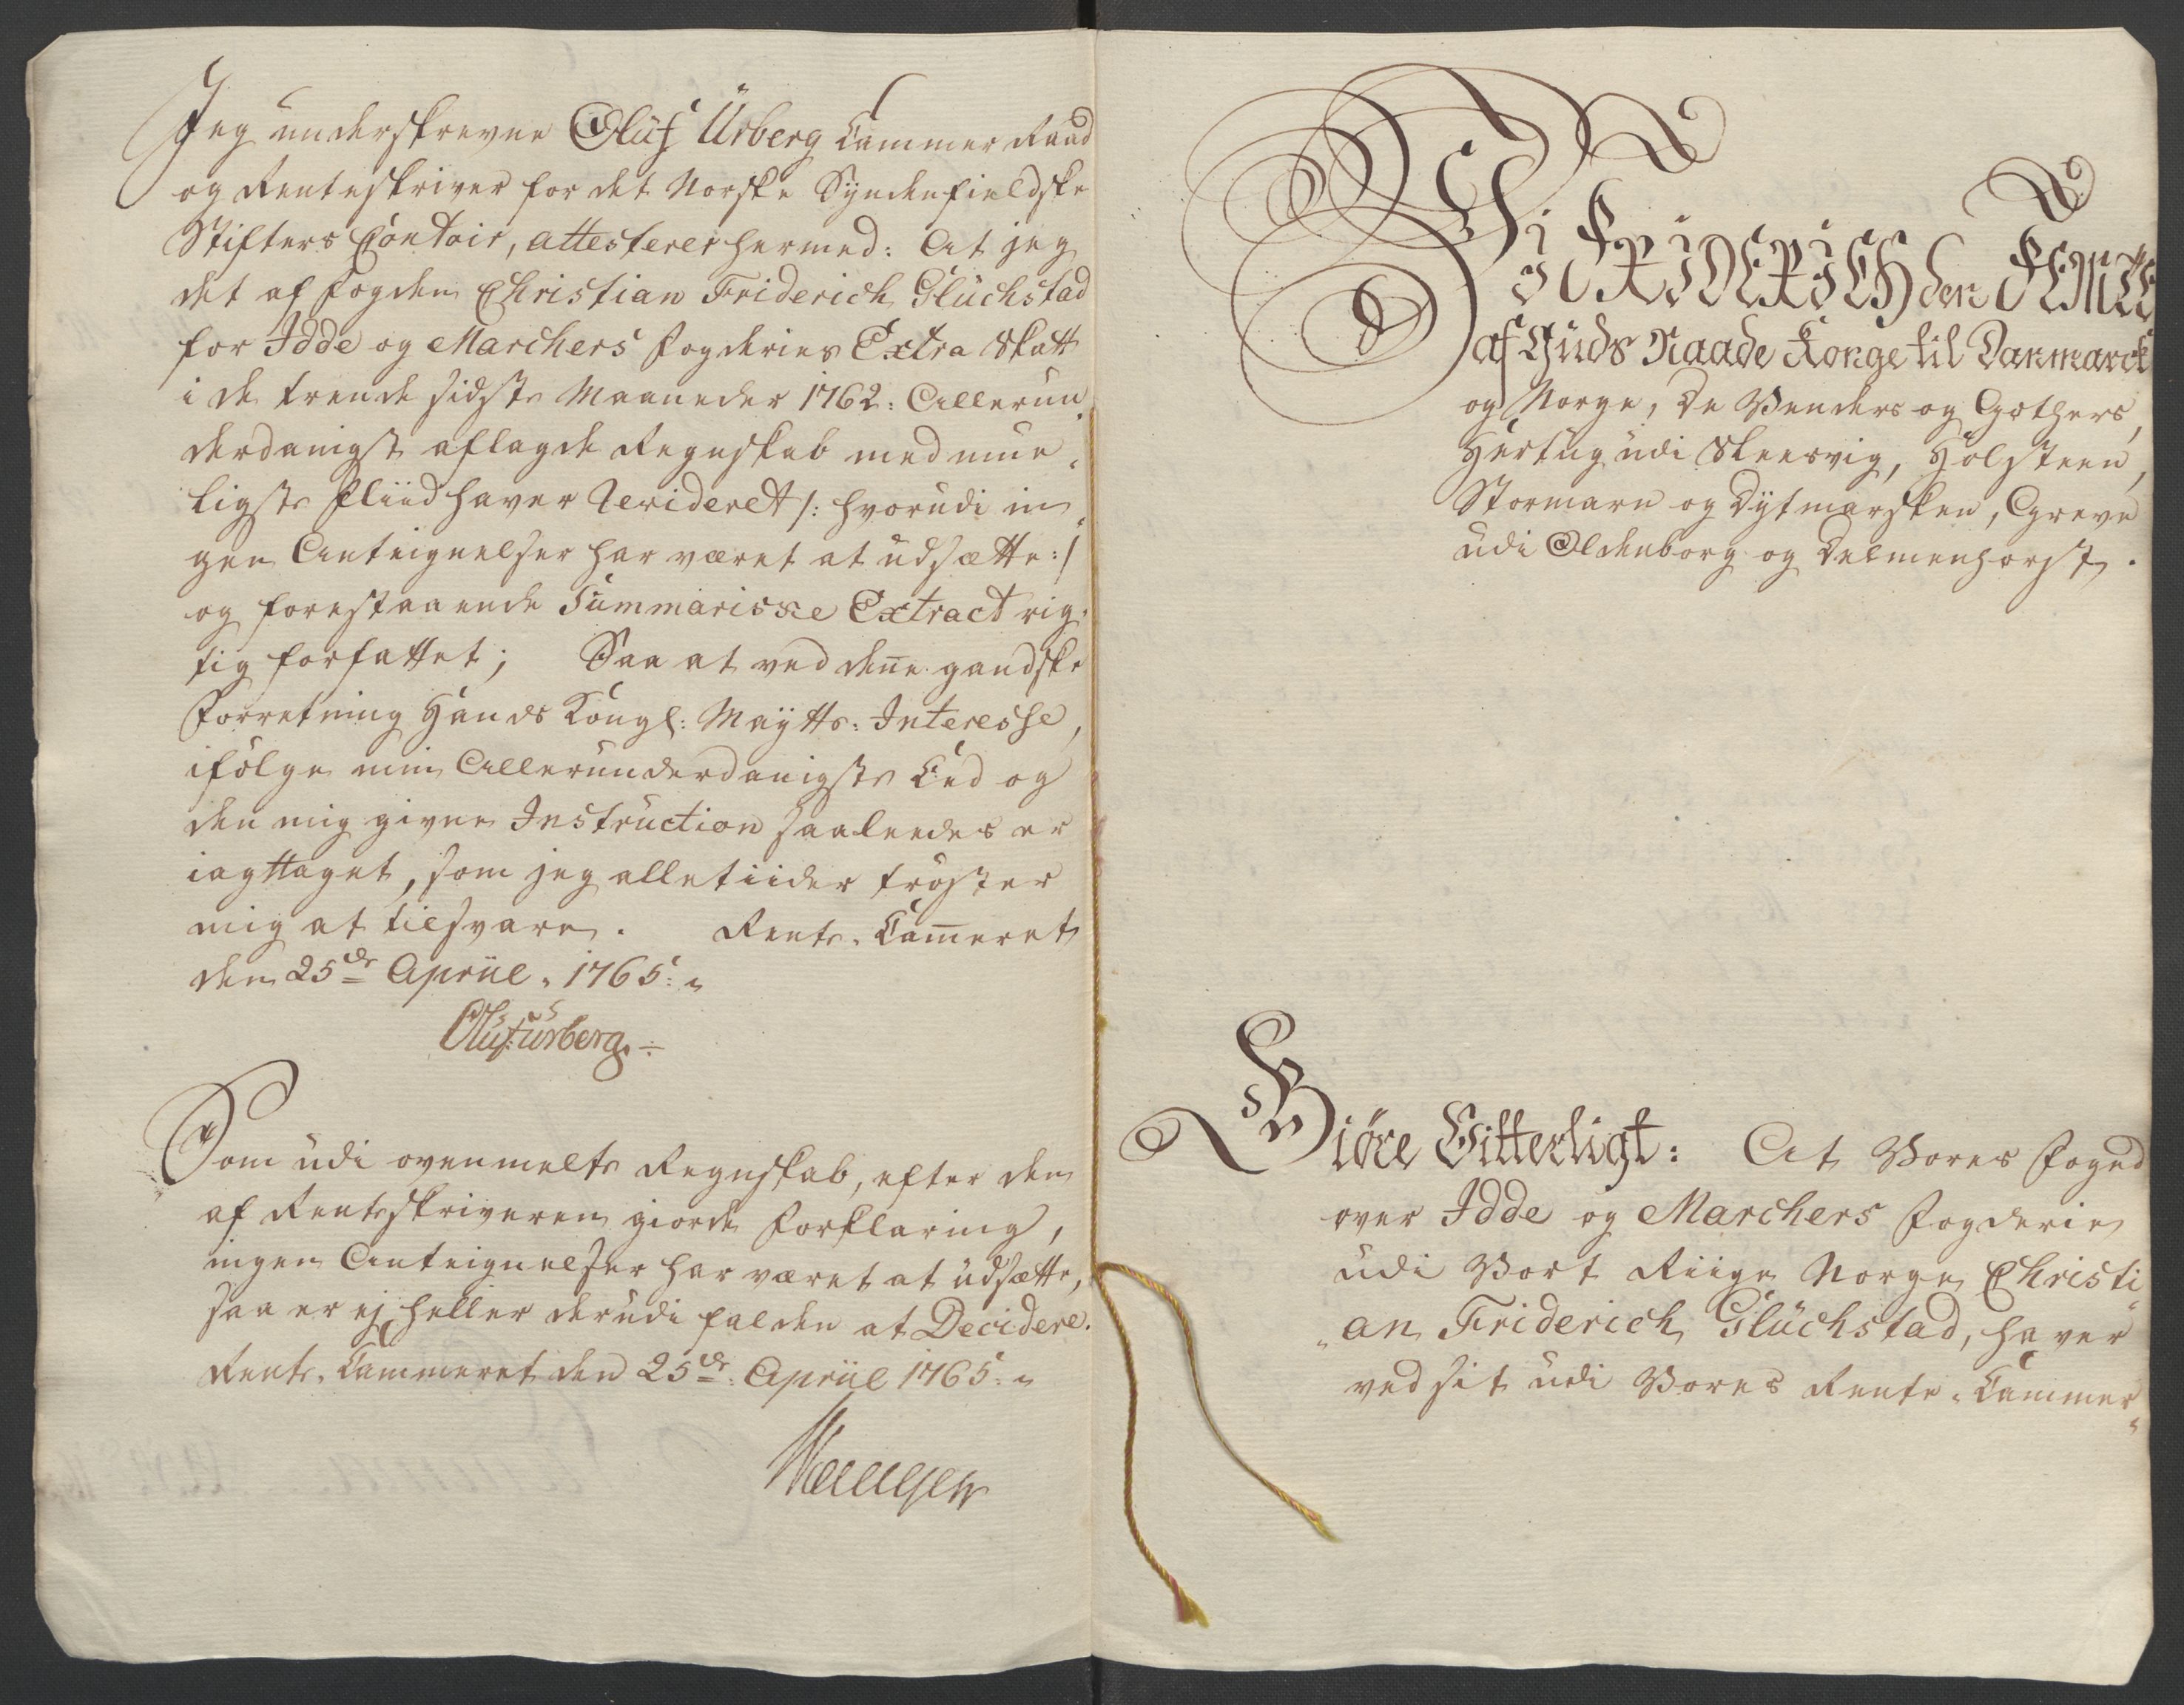 Jeg underskrevne Oluf Urberg Cammer Raad
og Renteskriver for det Norske Syndenfieldske
Stifters Contoir, attesterer hermed: At jeg
det af Fogden Christian Friderich Glüchstad
for Idde og Marchers Fogderies Extra Skatt
i de trende sidste Maaneder 1762: Allerun-
derdanigst aflagde Regnskab med mue-
ligste Fliid haver Revideret /: hvorudi in-
gen Anteignelser har været at udsætte :/
og forestaaende Summariske Extract rig-
tig forfattet; Saa at ved den̄e gandske
Forretning Hands Kongl: Maÿtts: Interesse,
ifölge min Allerunderdanigste Eed og
den mig givne Instruction saaleedes er
iagttaget, som jeg alletiider tröster
mig at tilsvare. Rente-Cam̄eret
den 25de Apriil 1765.
Oluf Urberg
Som udi ovenmelte Regnskab, efter den
af Renteskriveren giorde Forklaring,
ingen Anteignelser har været at udsætte,
saa er ej heller derudi falden at Decidere.
Rente-Cammeret den 25de: Apriil 1765.
Vi FRIDERICH den FEMTE
af Guds Naade Konge til Danmarck
og Norge, De Venders og Gothers,
Hertug udi Sleesvig, Holsteen,
Stormarn og Dytmarsken, Greve
udi Oldenborg og Delmenhorst.
Giöre Vitterligt: At Vores Foged
over Idde og Marchers Fogderie
udi Vort Riige Norge Christi-
an Friderich Glüchstad, haver
ved sit udi Vores Rente-Cammer-